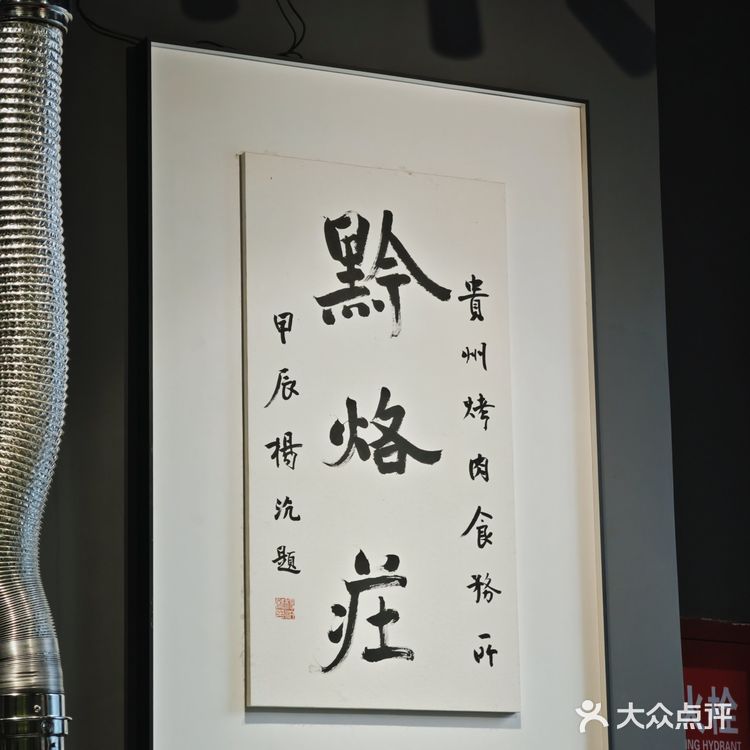 貴州烤肉食務所
黔烙莊
甲辰楊沇題
火栓
ING HYDRANT
大众点评